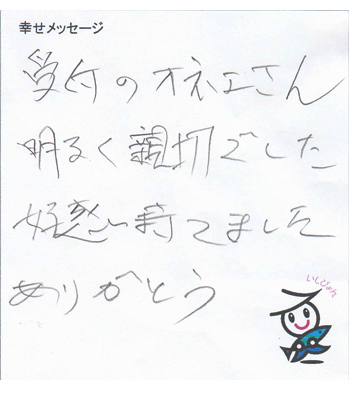 幸せメッセージ
受付のオネエさん
明るく親切でした
好感が持てました
ありがとう
いしぴょん